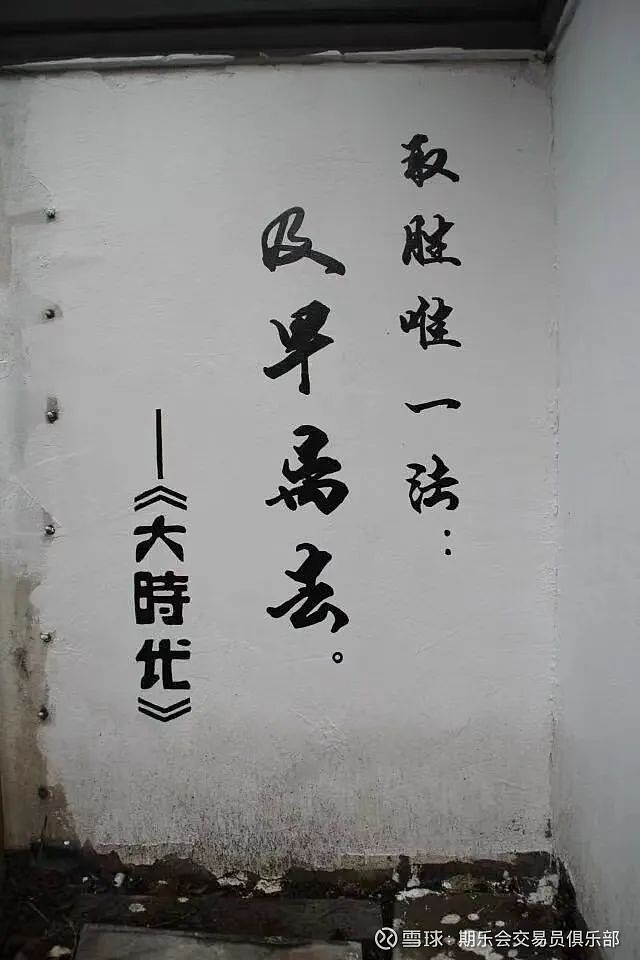 取胜唯一法：
及早离去。
——《大時代》
雪球：期乐会交易员俱乐部